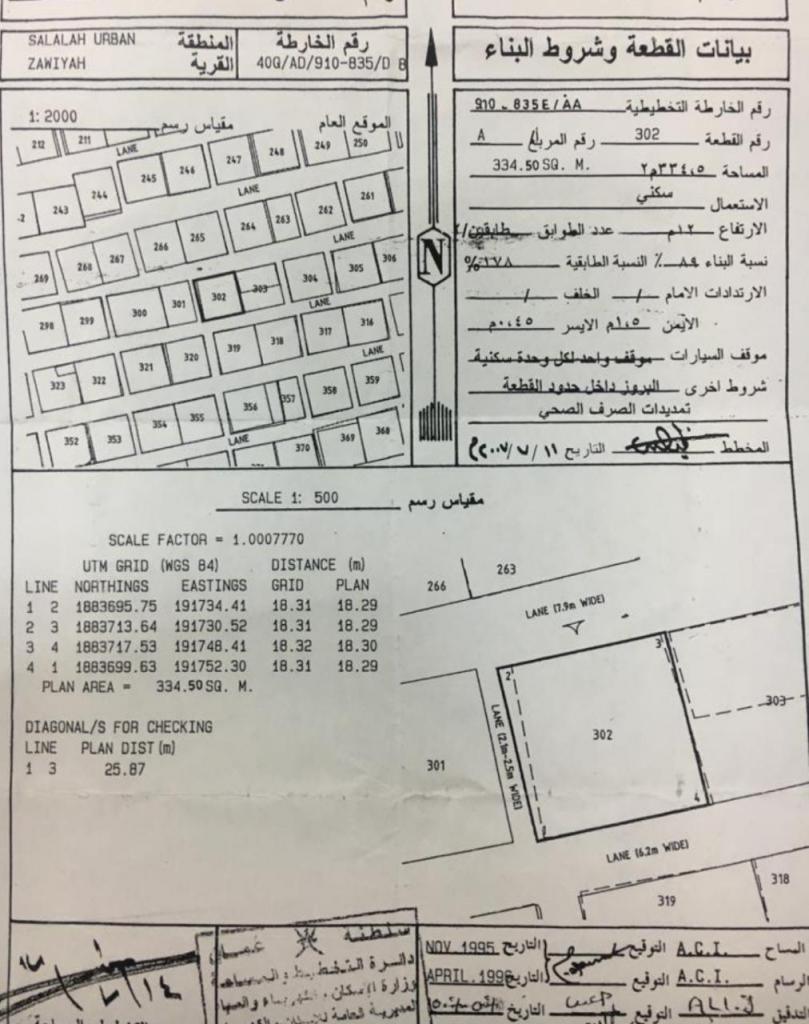 SALALAH URBAN المنطقة
ZAWIYAH القرية
رقم الخارطة
40Q/AD/910-835/D B
بيانات القطعة وشروط البناء
1: 2000 مقياس رسم الموقع العام
212 211 LANE 247 248 249 250
245 246
-2 243 244 LANE
264 263 262 261
266 265 LANE
269 268 267 304 305 306
298 299 300 301 302 303
LANE
317 316
323 322 321 320 319 318 LANE
356 357 358 359
352 353 354 355 LANE 370 369 368
N
رقم الخارطة التخطيطية 910 - 835E/AA
رقم القطعة 302 رقم المربع A
المساحة ٣٣٤,٥م٢ 334.50 SQ. M.
الاستعمال سكني
الارتفاع ١٢م عدد الطوابق طابقين
نسبة البناء ٨٩٪ النسبة الطابقية ١٧٨%
الارتدادات الامام / الخلف /
الأيمن ١,٥م الايسر ٠,٤٥م
موقف السيارات موقف واحد لكل وحدة سكنية
شروط اخرى البروز داخل حدود القطعة
تمديدات الصرف الصحي
المخطط التاريخ ١١ / ٧ / ٢٠٠٧م
SCALE 1: 500 مقياس رسم
SCALE FACTOR = 1.0007770
UTM GRID (WGS 84) DISTANCE (m)
LINE NORTHINGS EASTINGS GRID PLAN
1 2 1883695.75 191734.41 18.31 18.29
2 3 1883713.64 191730.52 18.31 18.29
3 4 1883717.53 191748.41 18.32 18.30
4 1 1883699.63 191752.30 18.31 18.29
PLAN AREA = 334.50 SQ. M.
DIAGONAL/S FOR CHECKING
LINE PLAN DIST (m)
1 3 25.87
266 263
LANE (7.9m WIDE)
2 3
301 LANE (2.1m-2.5m WIDE) 302 303
1 4
LANE (6.2m WIDE)
319 318
سلطنة عمان
دائرة التخطيط والمساحة
وزارة الاسكان
المديرية العامة للاسكان
المساح A.C.I. التوقيع التاريخ NOV. 1995
الرسام A.C.I. التوقيع التاريخ APRIL. 1996
تدقيق ALI.J التوقيع التاريخ